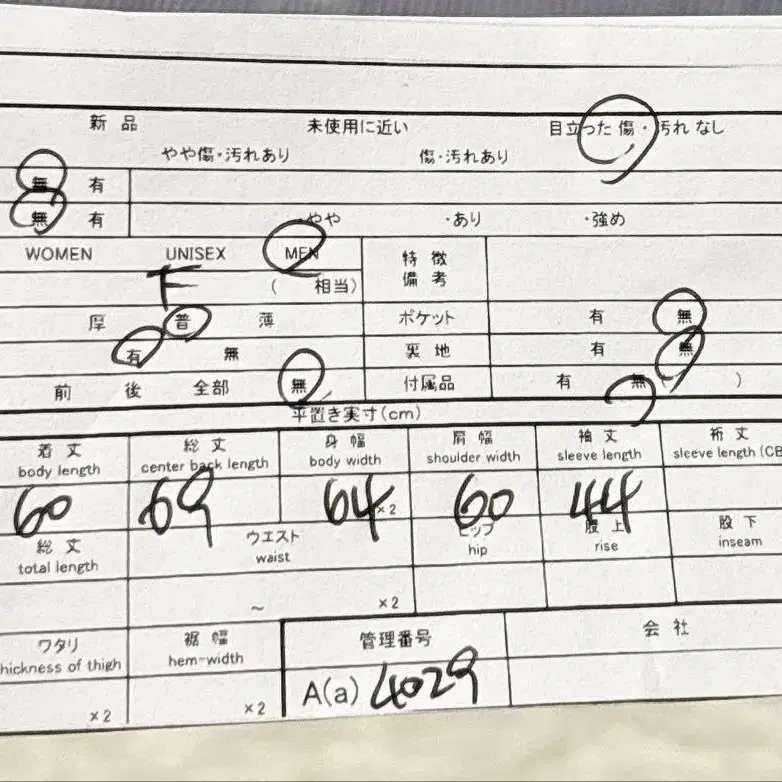 新品 未使用に近い 目立った傷・汚れなし
やや傷・汚れあり 傷・汚れあり
無 有
無 有 ・やや ・あり ・強め
WOMEN UNISEX MEN 特徴
備考
F ( 相当)
厚 普 薄 ポケット 有 無
有 無 裏地 有 無
前 後 全部 無 付属品 有 無 ( )
平置き実寸(cm)
着丈 総丈 身幅 肩幅 袖丈 裄丈
body length center back length body width shoulder width sleeve length sleeve length (CB
60 69 64 ×2 60 44
総丈 ウエスト ヒップ 股上 股下
total length waist hip rise inseam
~ ×2
ワタリ 裾幅 管理番号 会社
hickness of thigh hem-width
×2 ×2 A(a) 4029